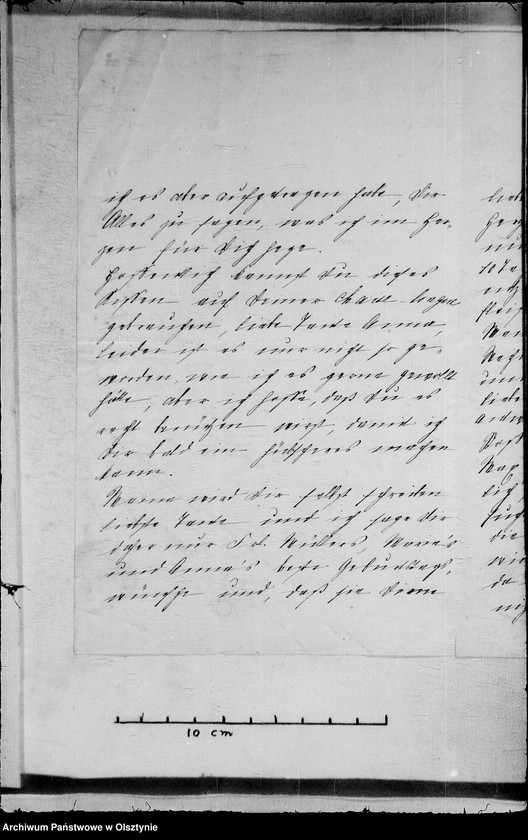 ich es aber aufgetragen habe, Dir
Alles zu sagen, was ich im Her-
zen für Dich hege.
Hoffentlich kannst Du dieses
Kissen auf Deiner Chaise-longue
gebrauchen, liebe Tante Anna,
leider ist es nur nicht so ge-
worden, wie ich es gerne gewollt
hätte, aber ich hoffe, daß Du es
recht benützen wirst, damit ich
Dir bald ein hübscheres machen
kann.
Mama wird Dir selbst schreiben
liebste Tante und ich sage Dir
daher nur Frl. Müllers,
und Anna's beste Geburtstags-
wünsche und, daß sie Deine
10 cm
Archiwum Państwowe w Olsztynie